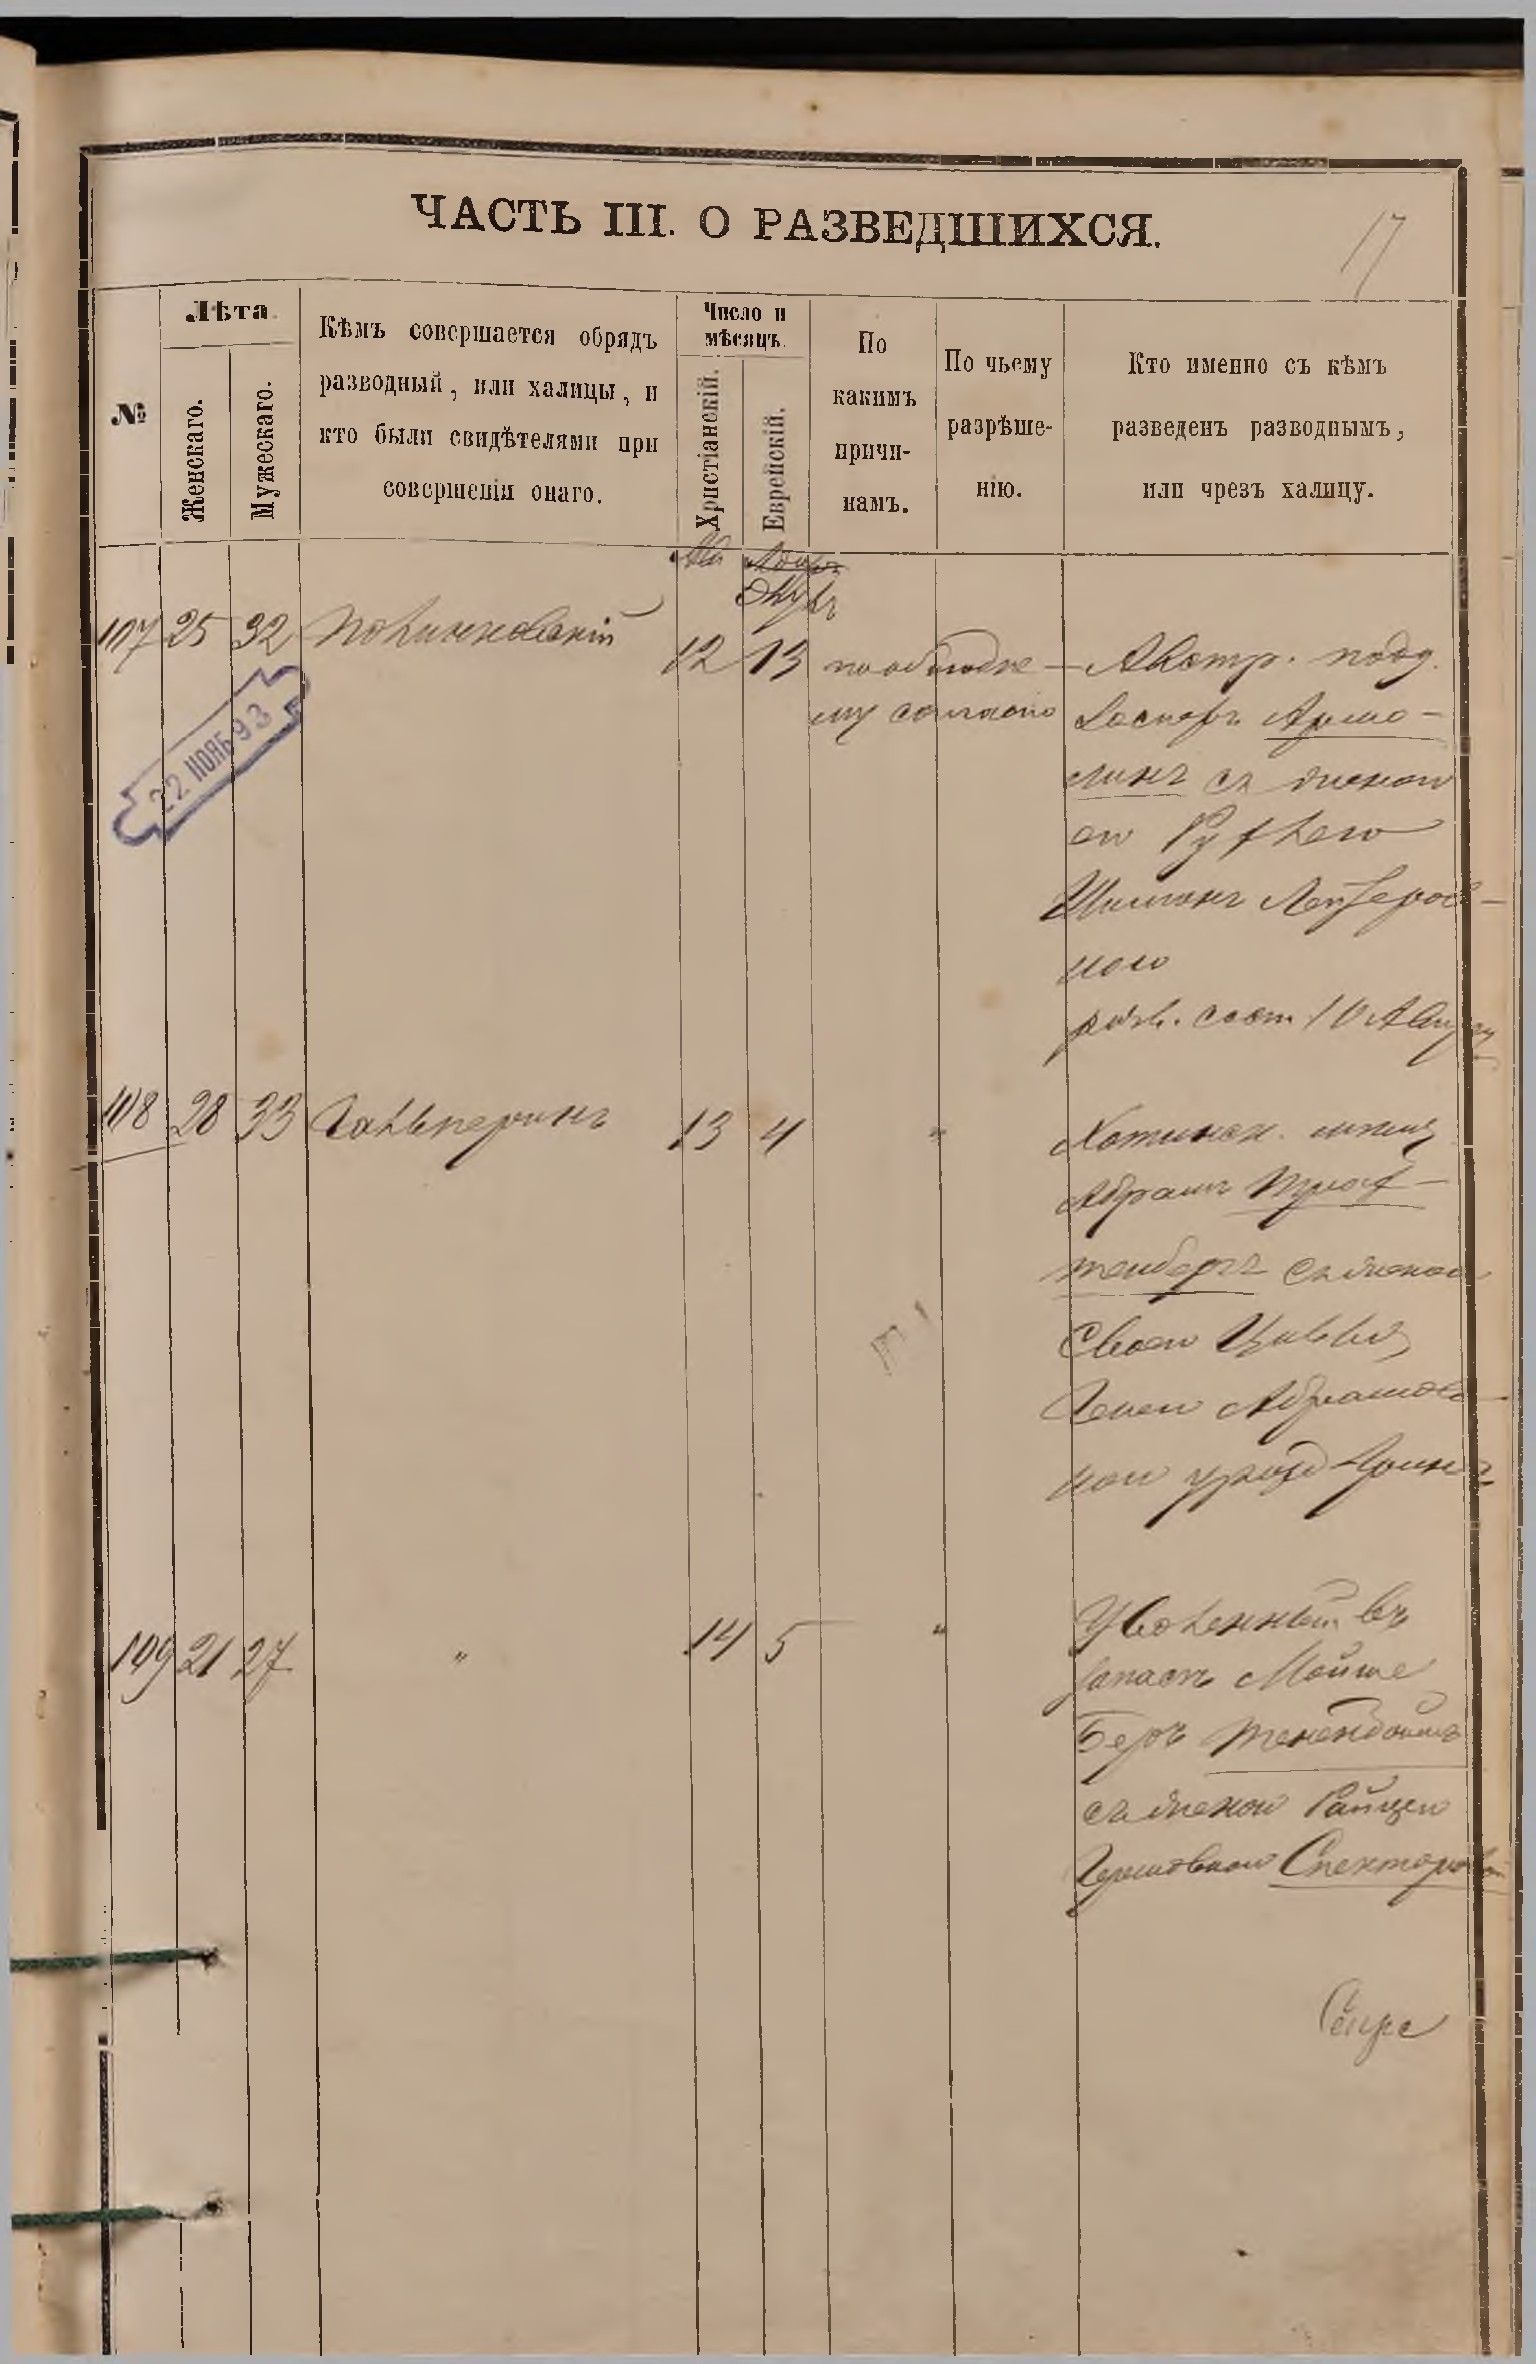 ЧАСТЬ III. О РАЗВЕДШИХСЯ.
17
№
Лѣта.
Женскаго.
Мужескаго.
Кѣмъ совершается обрядъ
разводный, или халицы, и
кто были свидѣтелями при
совершеніи онаго.
Число и
мѣсяцъ.
Христіанскій.
Еврейскій.
По
какимъ
причи-
намъ.
По чьему
разрѣше-
нію.
Кто именно съ кѣмъ
разведенъ разводнымъ,
или чрезъ халицу.
107 25 32 Полинковскій 12 13
по обоюдно-
му согласію
Австр. подд.
Касперъ
съ женою
ею
Лейзеров-
ною
разв. сост. 10 Августа
22 НОЯБ 93
108 28 33 Гальперинъ 13 4 "
Хотинск. мѣщ
Абрамъ Трах-
тенбергъ съ женою
своею
Генею Абрамов-
ною урожд
109 21 27 " 14 5 "
Уволенный въ
запасъ Мойше
Беръ Тененбаумъ
съ женою Райцею
Гершковною Спекторовой